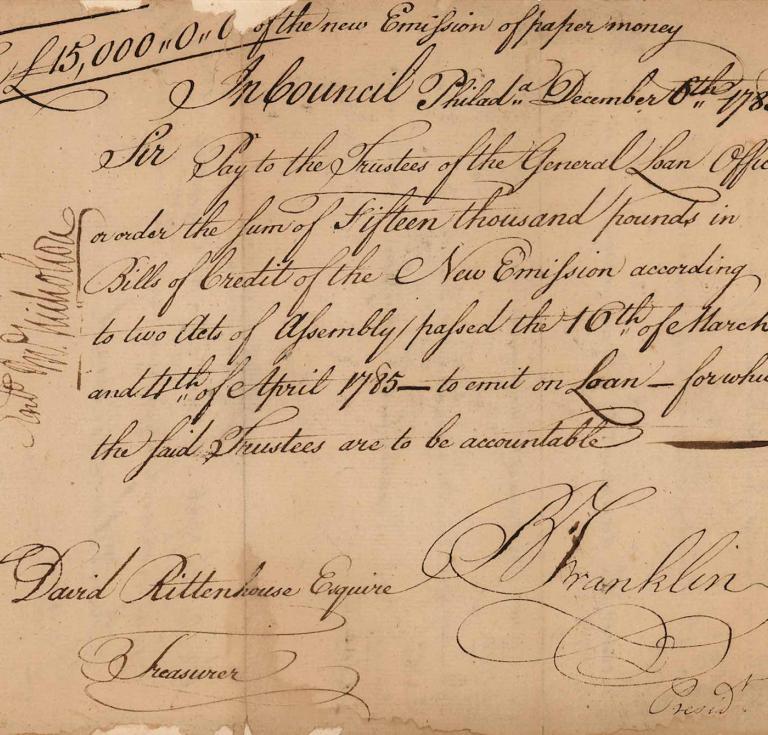 £15,000"0"0 of the new Emission of paper money
In Council Philad"a December 8th 178
Sir Pay to the Trustees of the General Loan Offic
or order the Sum of Fifteen thousand pounds in
Bills of Credit of the New Emission according
to two Acts of Assembly passed the 16th of March
and 4th of April 1785 — to emit on Loan — for whic
the said Trustees are to be accountable
B Franklin
David Rittenhouse Esquire
Treasurer
Presidt
Jno Nicholson